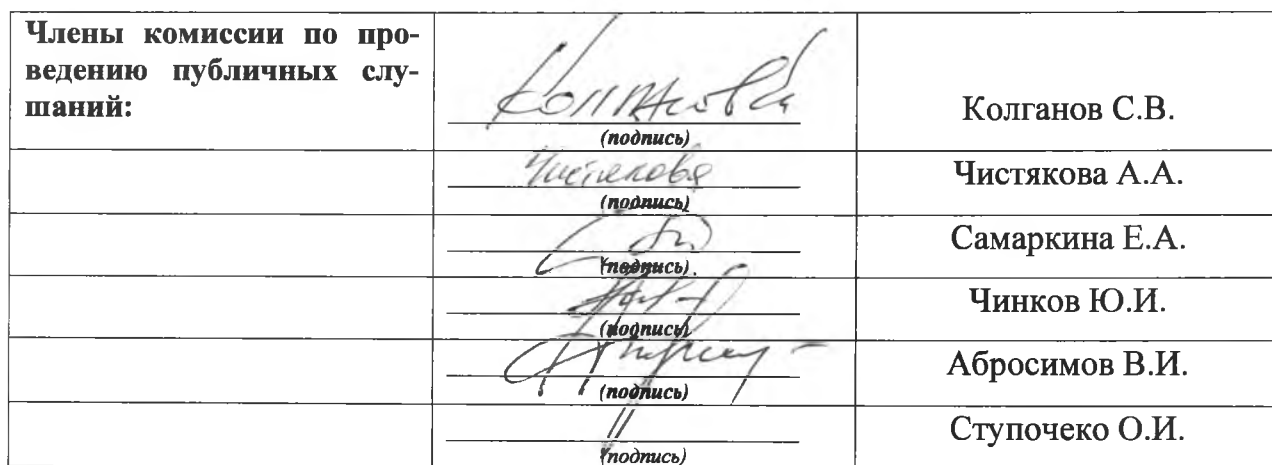 Члены комиссии по про-
ведению публичных слу-
шаний:
(подпись)
Колганов С.В.
Чистякова
(подпись)
Чистякова А.А.
(подпись)
Самаркина Е.А.
(подпись)
Чинков Ю.И.
(подпись)
Абросимов В.И.
(подпись)
Ступочеко О.И.